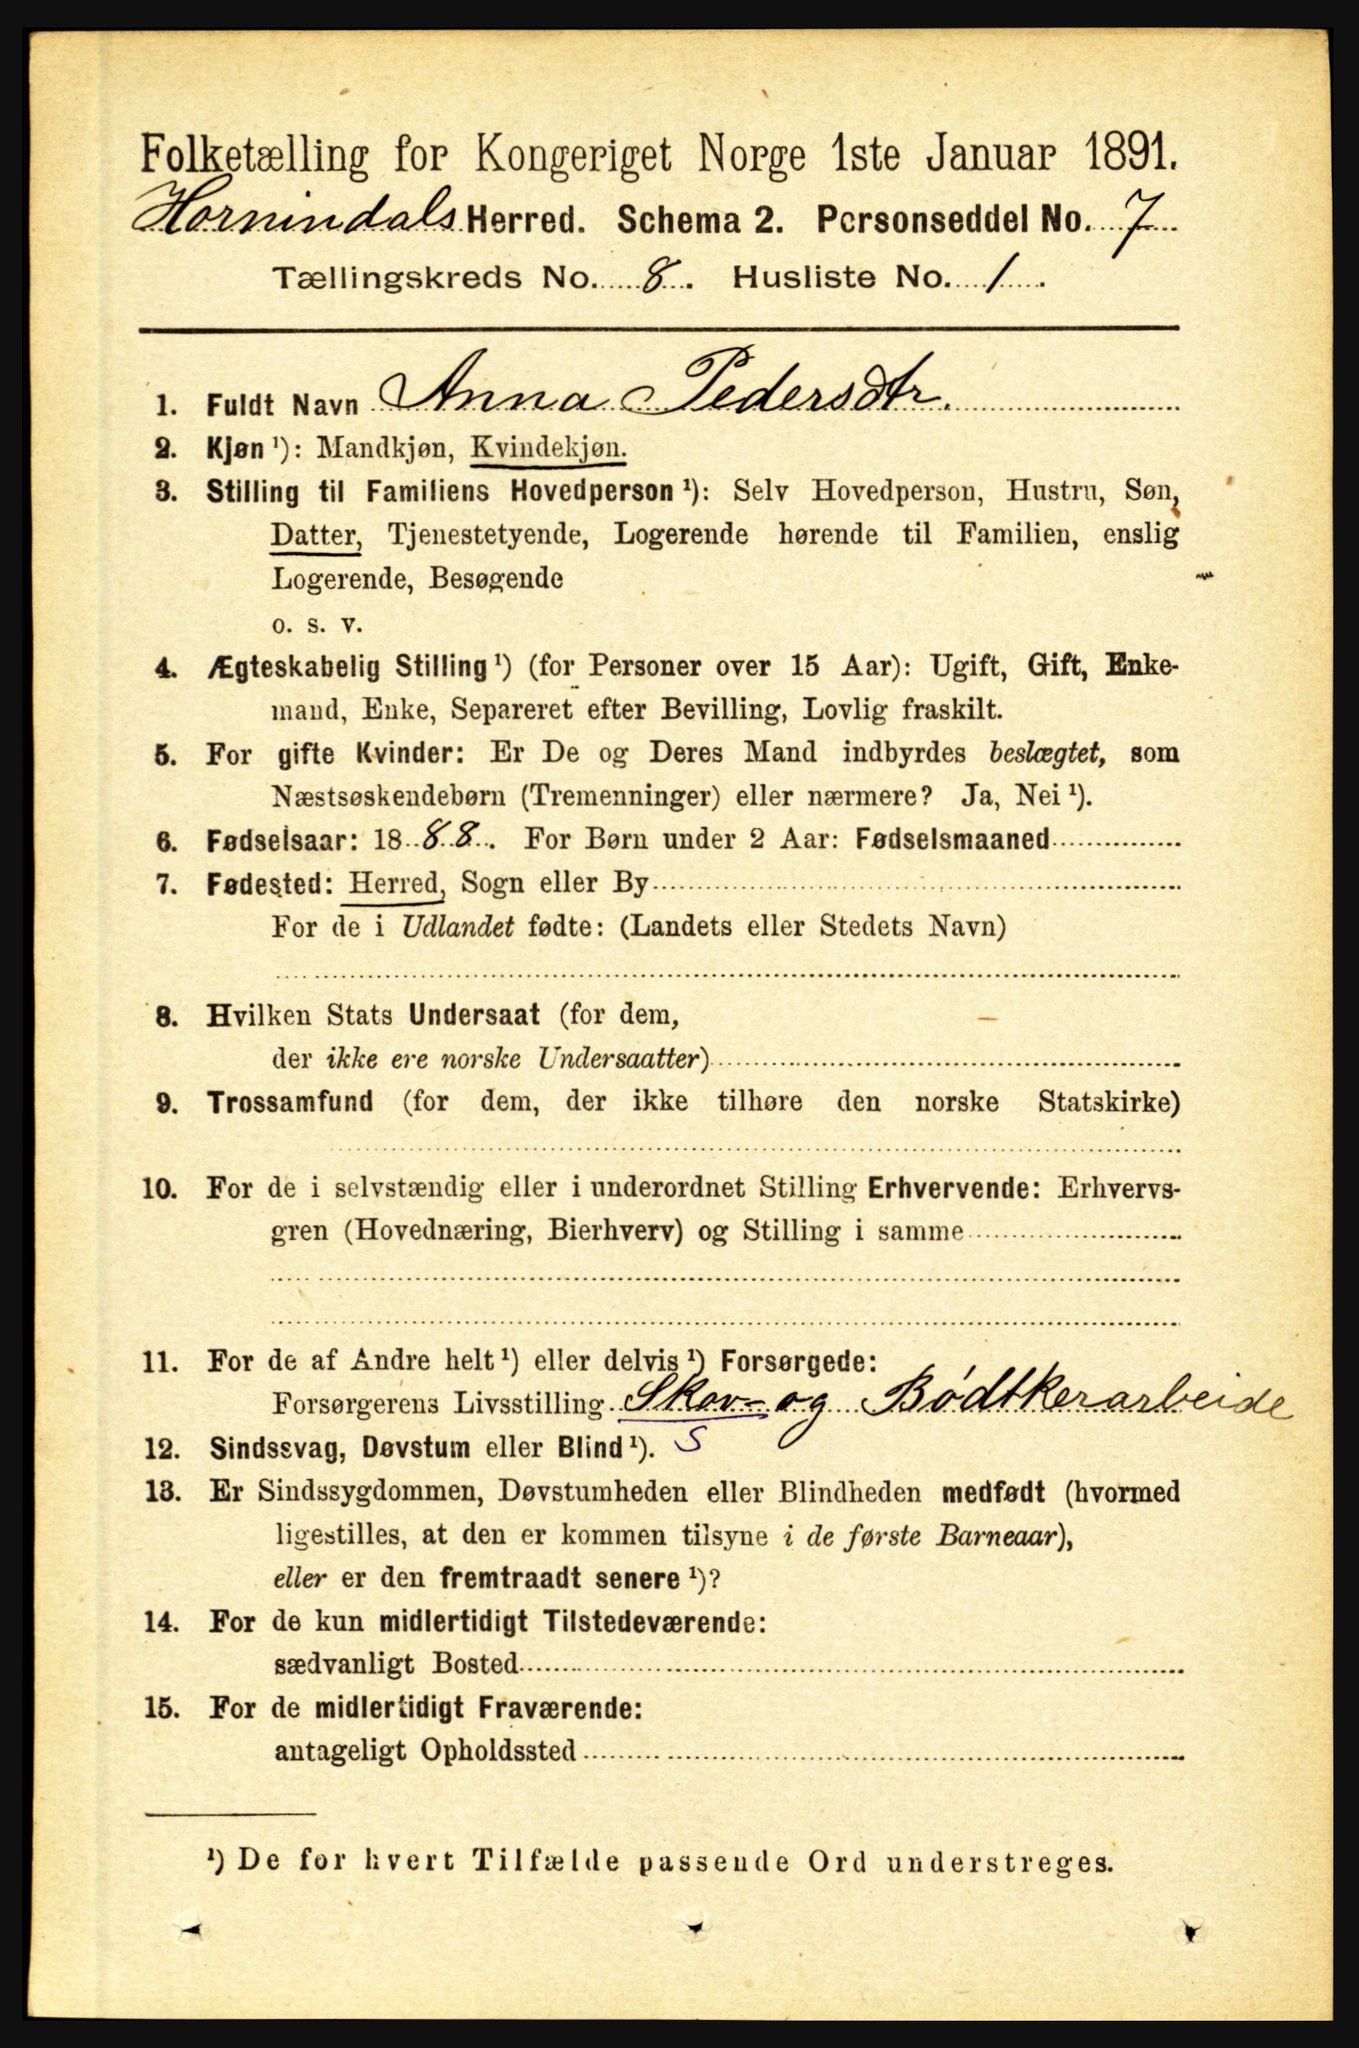 Folketælling for Kongeriget Norge 1ste Januar 1891.
Hornindals Herred. Schema 2. Personseddel No. 7
Tællingskreds No. 8. Husliste No. 1.
1. Fuldt Navn Anna Pedersdtr.
2. Kjøn ¹): Mandkjøn, Kvindekjøn.
3. Stilling til Familiens Hovedperson ¹): Selv Hovedperson, Hustru, Søn,
Datter, Tjenestetyende, Logerende hørende til Familien, enslig
Logerende, Besøgende
o. s. v.
4. Ægteskabelig Stilling ¹) (for Personer over 15 Aar): Ugift, Gift, Enke-
mand, Enke, Separeret efter Bevilling, Lovlig fraskilt.
5. For gifte Kvinder: Er De og Deres Mand indbyrdes beslægtet, som
Næstsøskendebørn (Tremenninger) eller nærmere? Ja, Nei ¹).
6. Fødselsaar: 1888. For Børn under 2 Aar: Fødselsmaaned
7. Fødested: Herred, Sogn eller By
For de i Udlandet fødte: (Landets eller Stedets Navn)
8. Hvilken Stats Undersaat (for dem,
der ikke ere norske Undersaatter)
9. Trossamfund (for dem, der ikke tilhøre den norske Statskirke)
10. For de i selvstændig eller i underordnet Stilling Erhvervende: Erhvervs-
gren (Hovednæring, Bierhverv) og Stilling i samme
11. For de af Andre helt ¹) eller delvis ¹) Forsørgede:
Forsørgerens Livsstilling Skov- og Bødtkerarbeide
12. Sindssvag, Døvstum eller Blind ¹). S
13. Er Sindssygdommen, Døvstumheden eller Blindheden medfødt (hvormed
ligestilles, at den er kommen tilsyne i de første Barneaar),
eller er den fremtraadt senere ¹)?
14. For de kun midlertidigt Tilstedeværende:
sædvanligt Bosted
15. For de midlertidigt Fraværende:
antageligt Opholdssted
¹) De for hvert Tilfælde passende Ord understreges.